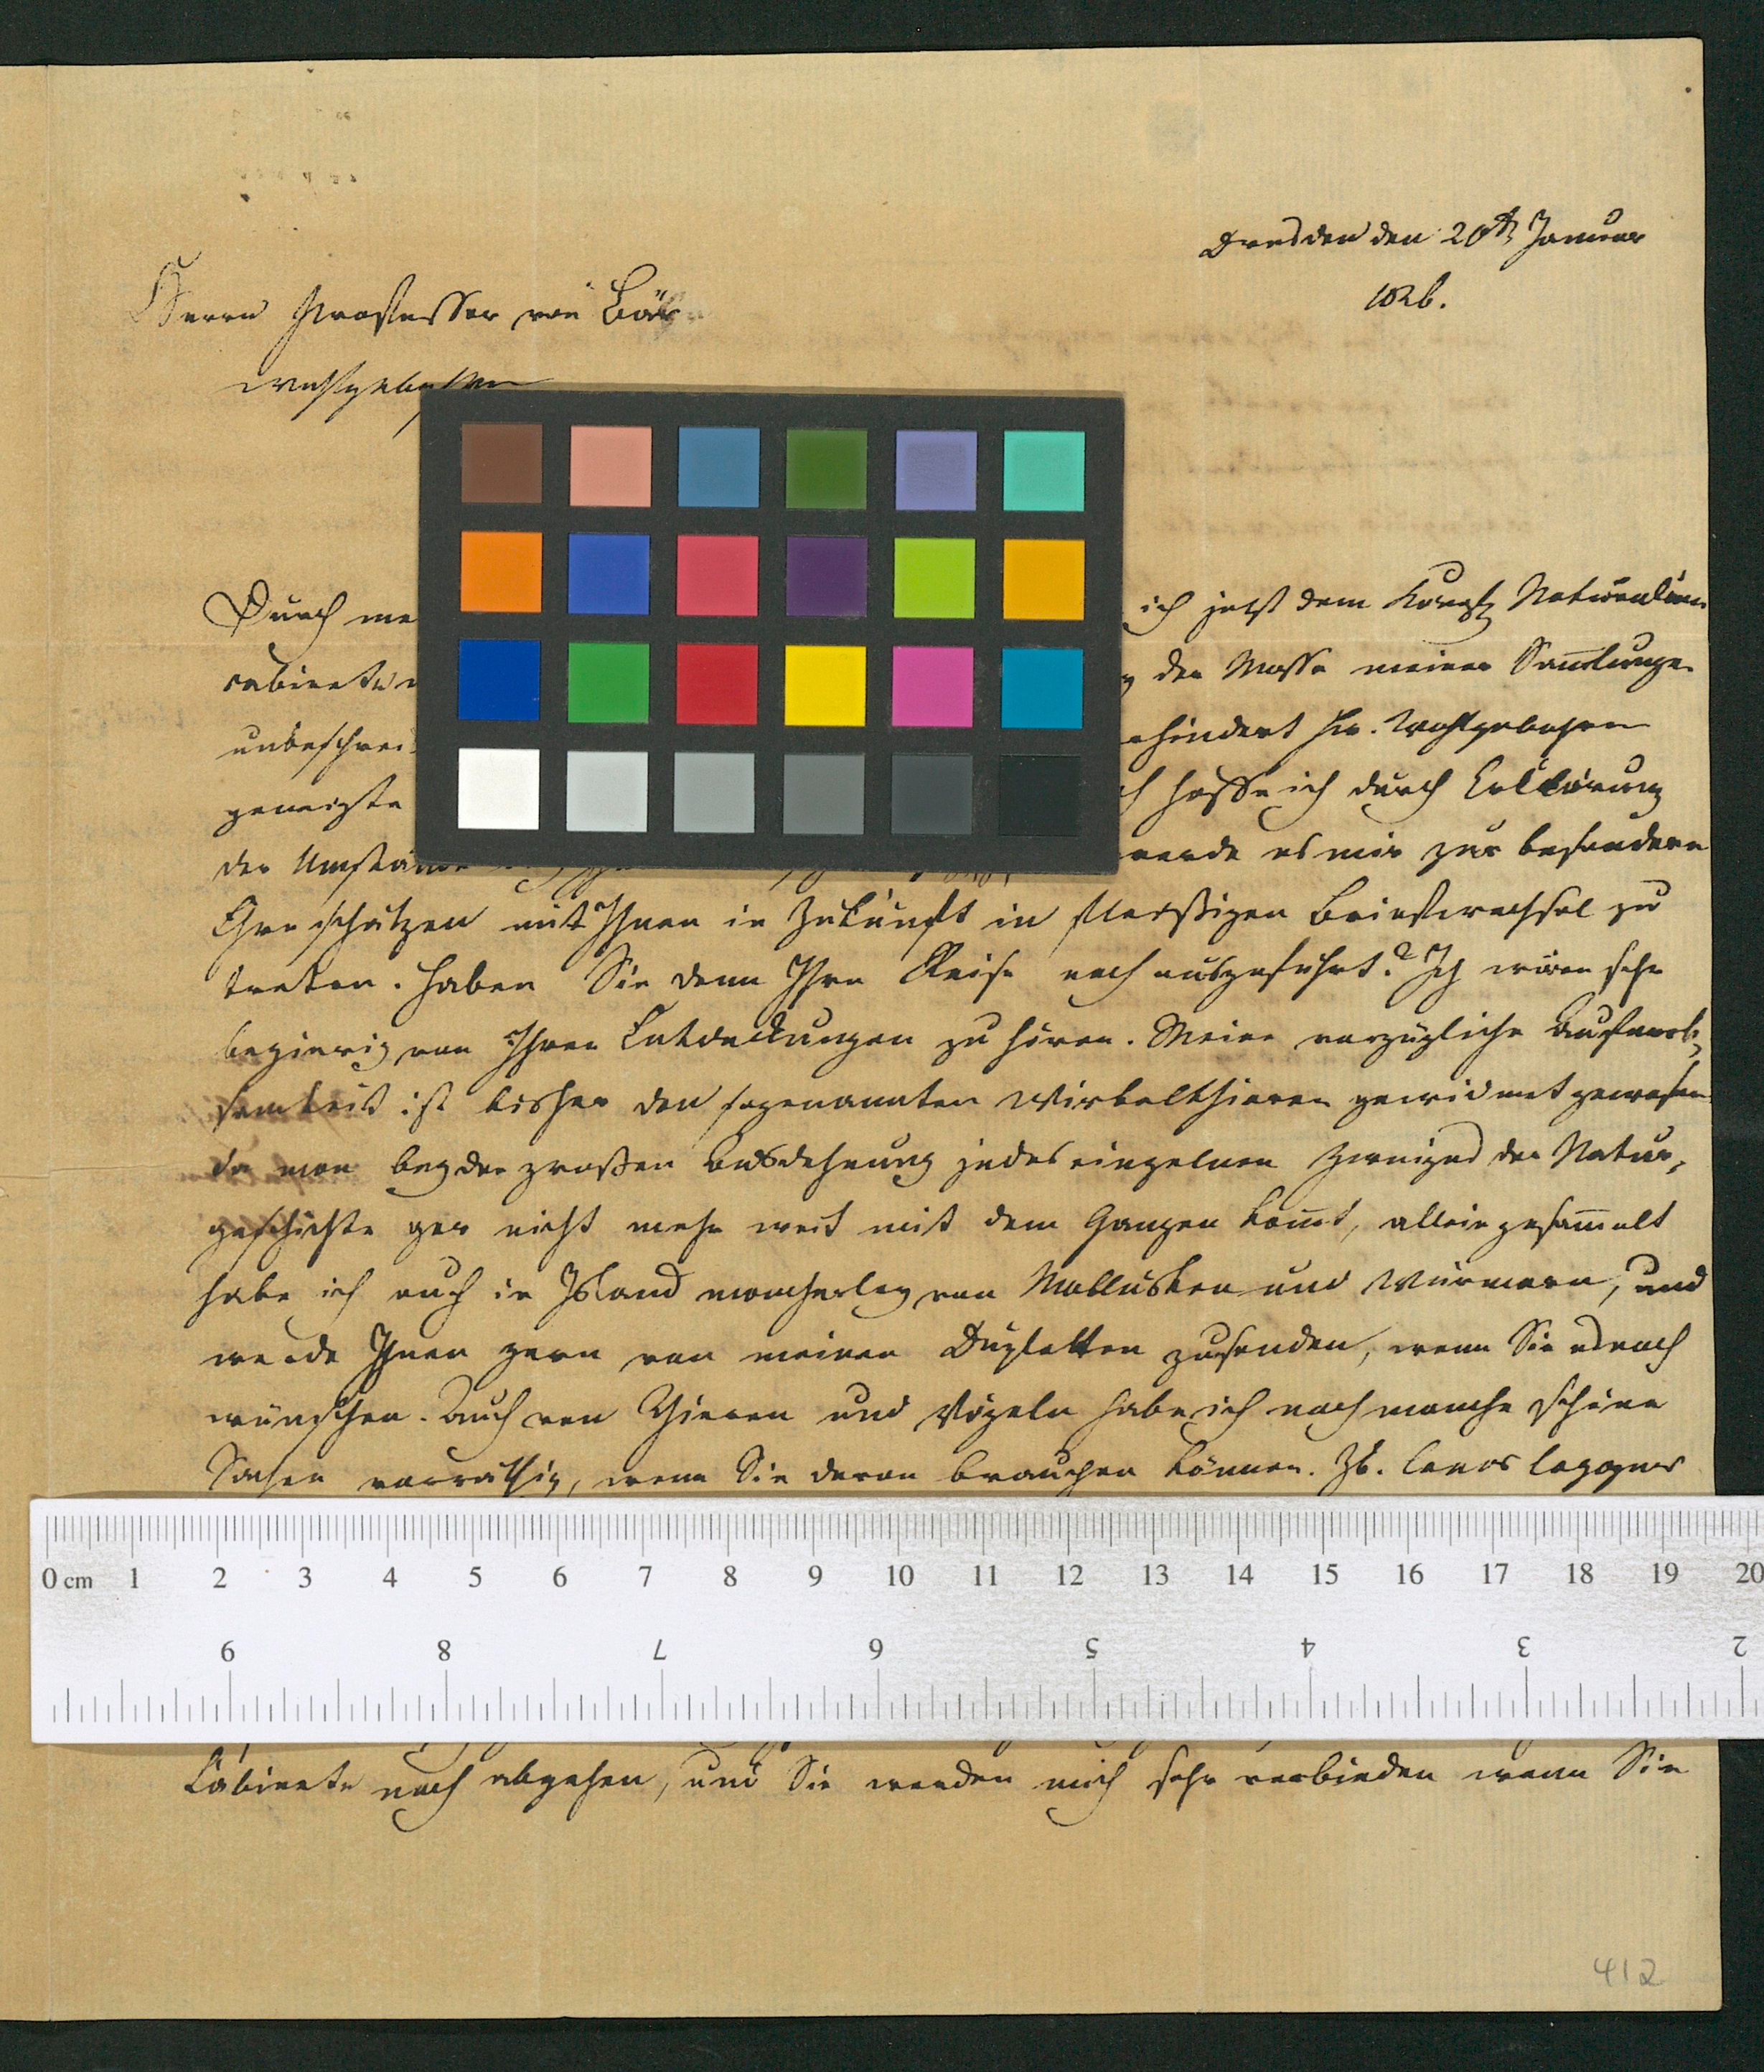 Dresden den 20st Januar
1826.
Herrn Professor von Bär
wohlgebohren
Durch me
ich jetzt dem Königl Naturalien
cabinete
der Masse meiner Sam̅lungen
unbeschrei
ehindert Ew. Wohlgebohren
geneigte
ch hoffe ich durch Erklärung
der Umstände
werde es mir zur besondern
Ehre schätzen mit Ihnen in Zukunft in fleißigen Briefwechsel zu
treten. Haben Sie denn Ihre Reise noch ausgeführt? Ich wäre sehr
begierig von Ihren Entdeckungen zu hören. Meine vorzügliche Aufmerk-
samkeit ist bisher den sogenannten Wirbelthieren gewidmet gewesen
da man bey der großen Ausdehnung jedes einzelnen Zweiges der Natur-
geschichte gar nicht mehr weit mit dem Ganzen kom̅t, allein gesam̅elt
habe ich auch in Island mancherley von Mollusken und Würmern, und
werde Ihnen gern von meinen Dupletten zusenden, wenn Sie es noch
wünschen. Auch von Thieren und Vögeln habe ich noch manche schöne
Sachen vorräthig, wenn Sie davon brauchen können. Zb. Canis lagopus
0 cm 1 2 3 4 5 6 7 8 9 10 11 12 13 14 15 16 17 18 19 20
9 8 7 6 5 4 3 2
Cabinete noch abgehen, und Sie werden mich sehr verbinden wenn Sie
412